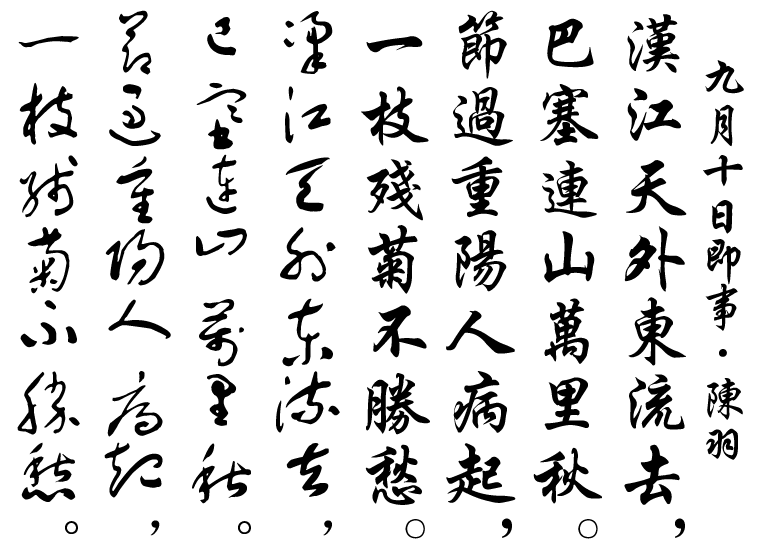 九月十日即事・陳羽
漢江天外東流去，
巴塞連山萬里秋。
節過重陽人病起，
一枝殘菊不勝愁。
漢江天外東流去，
巴塞連山萬里秋。
節過重陽人病起，
一枝殘菊不勝愁。